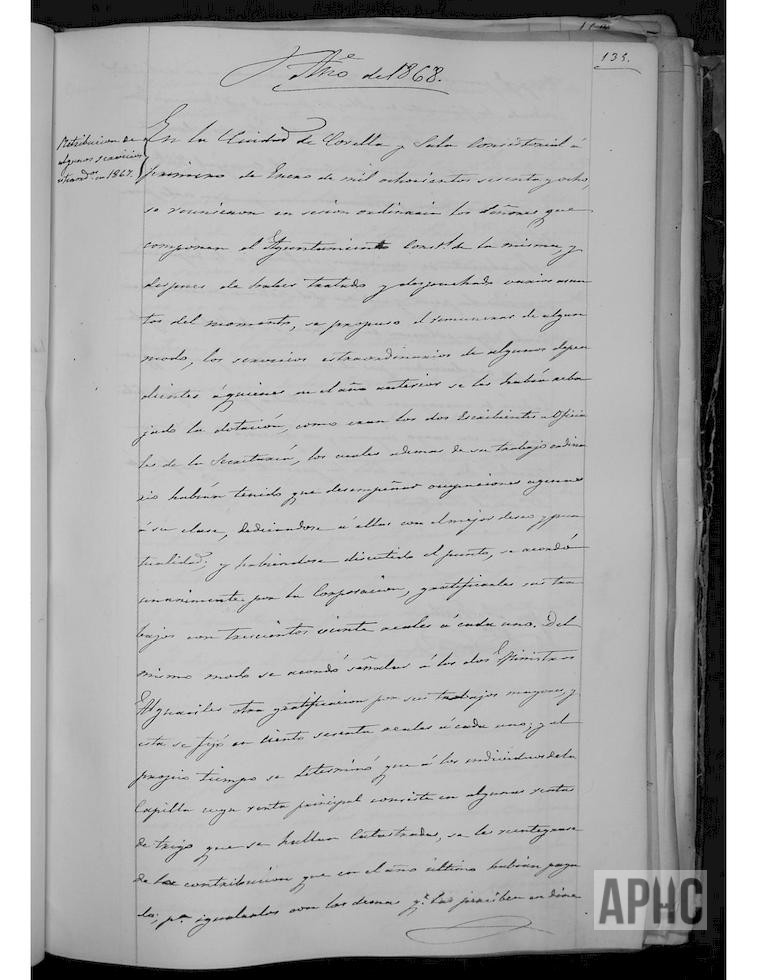 135.
Año de 1868.
Retribucion de
algunos servicios
en 1867.
En la Ciudad de Corella y Sala Consistorial á
primero de Enero de mil ochocientos sesenta y ocho,
se reunieron en sesion ordinaria los Señores que
componen el Ayuntamiento Const.l de la misma, y
despues de haber tratado y despachado varios asun
tos del momento, se propuso el remunerar de algun
modo, los servicios estraordinarios de algunos depen
dientes á quienes en el año anterior se les habia reba
jado la dotacion, como eran los dos Escribientes u Oficia
les de la Secretaría, los cuales ademas de su trabajo ordina
rio habian tenido que desempeñar ocupaciones agenas
á su clase, dedicandose á ellas con el mejor deseo y pun
tualidad; y habiendose discutido el punto, se acordó
unanimemente por la Corporacion, gratificarles sus tra
bajos con trescientos veinte reales á cada uno. Del
mismo modo se acordó señalar á los dos Ministros
Alguaciles otra gratificacion por sus trabajos mayores, y
esta se fijó en ciento sesenta reales á cada uno; y al
propio tiempo se determinó que á los individuos de la
Capilla cuya renta principal consiste en algunas rentas
de trigo que se hallan Catastradas, se les reintegrase
de la contribucion que en el año último habian paga
do; p.a igualarlos con los demas q.e las perciben en dine
APHC